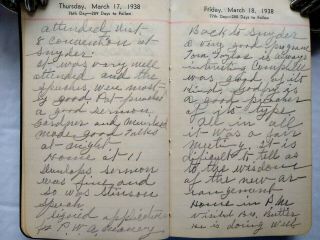 Thursday, March 17, 1938
76th Day—289 Days to Follow
attended Dist-
8 convention at
Snyder.
It was very well
attended and the
speeches were most-
ly good. Pat
made a good sermon.
Gardner and
made good talks
at night.
Home at 11
Dunlaps sermon
was fine and
so was Stinson
speech
Signed application
for P.W.A.
Friday, March 18, 1938
77th Day—288 Days to Follow
Back to Snyder
a very good program
Tom Taylor is always
interesting Campbell
was good of its
kind.
good preacher
of its type.
All in all
it was a fair
meeting. it is
difficult to tell as
to the wisdom
of the new ar-
rangement
Home in P.M.
Visited Butler
He is doing well